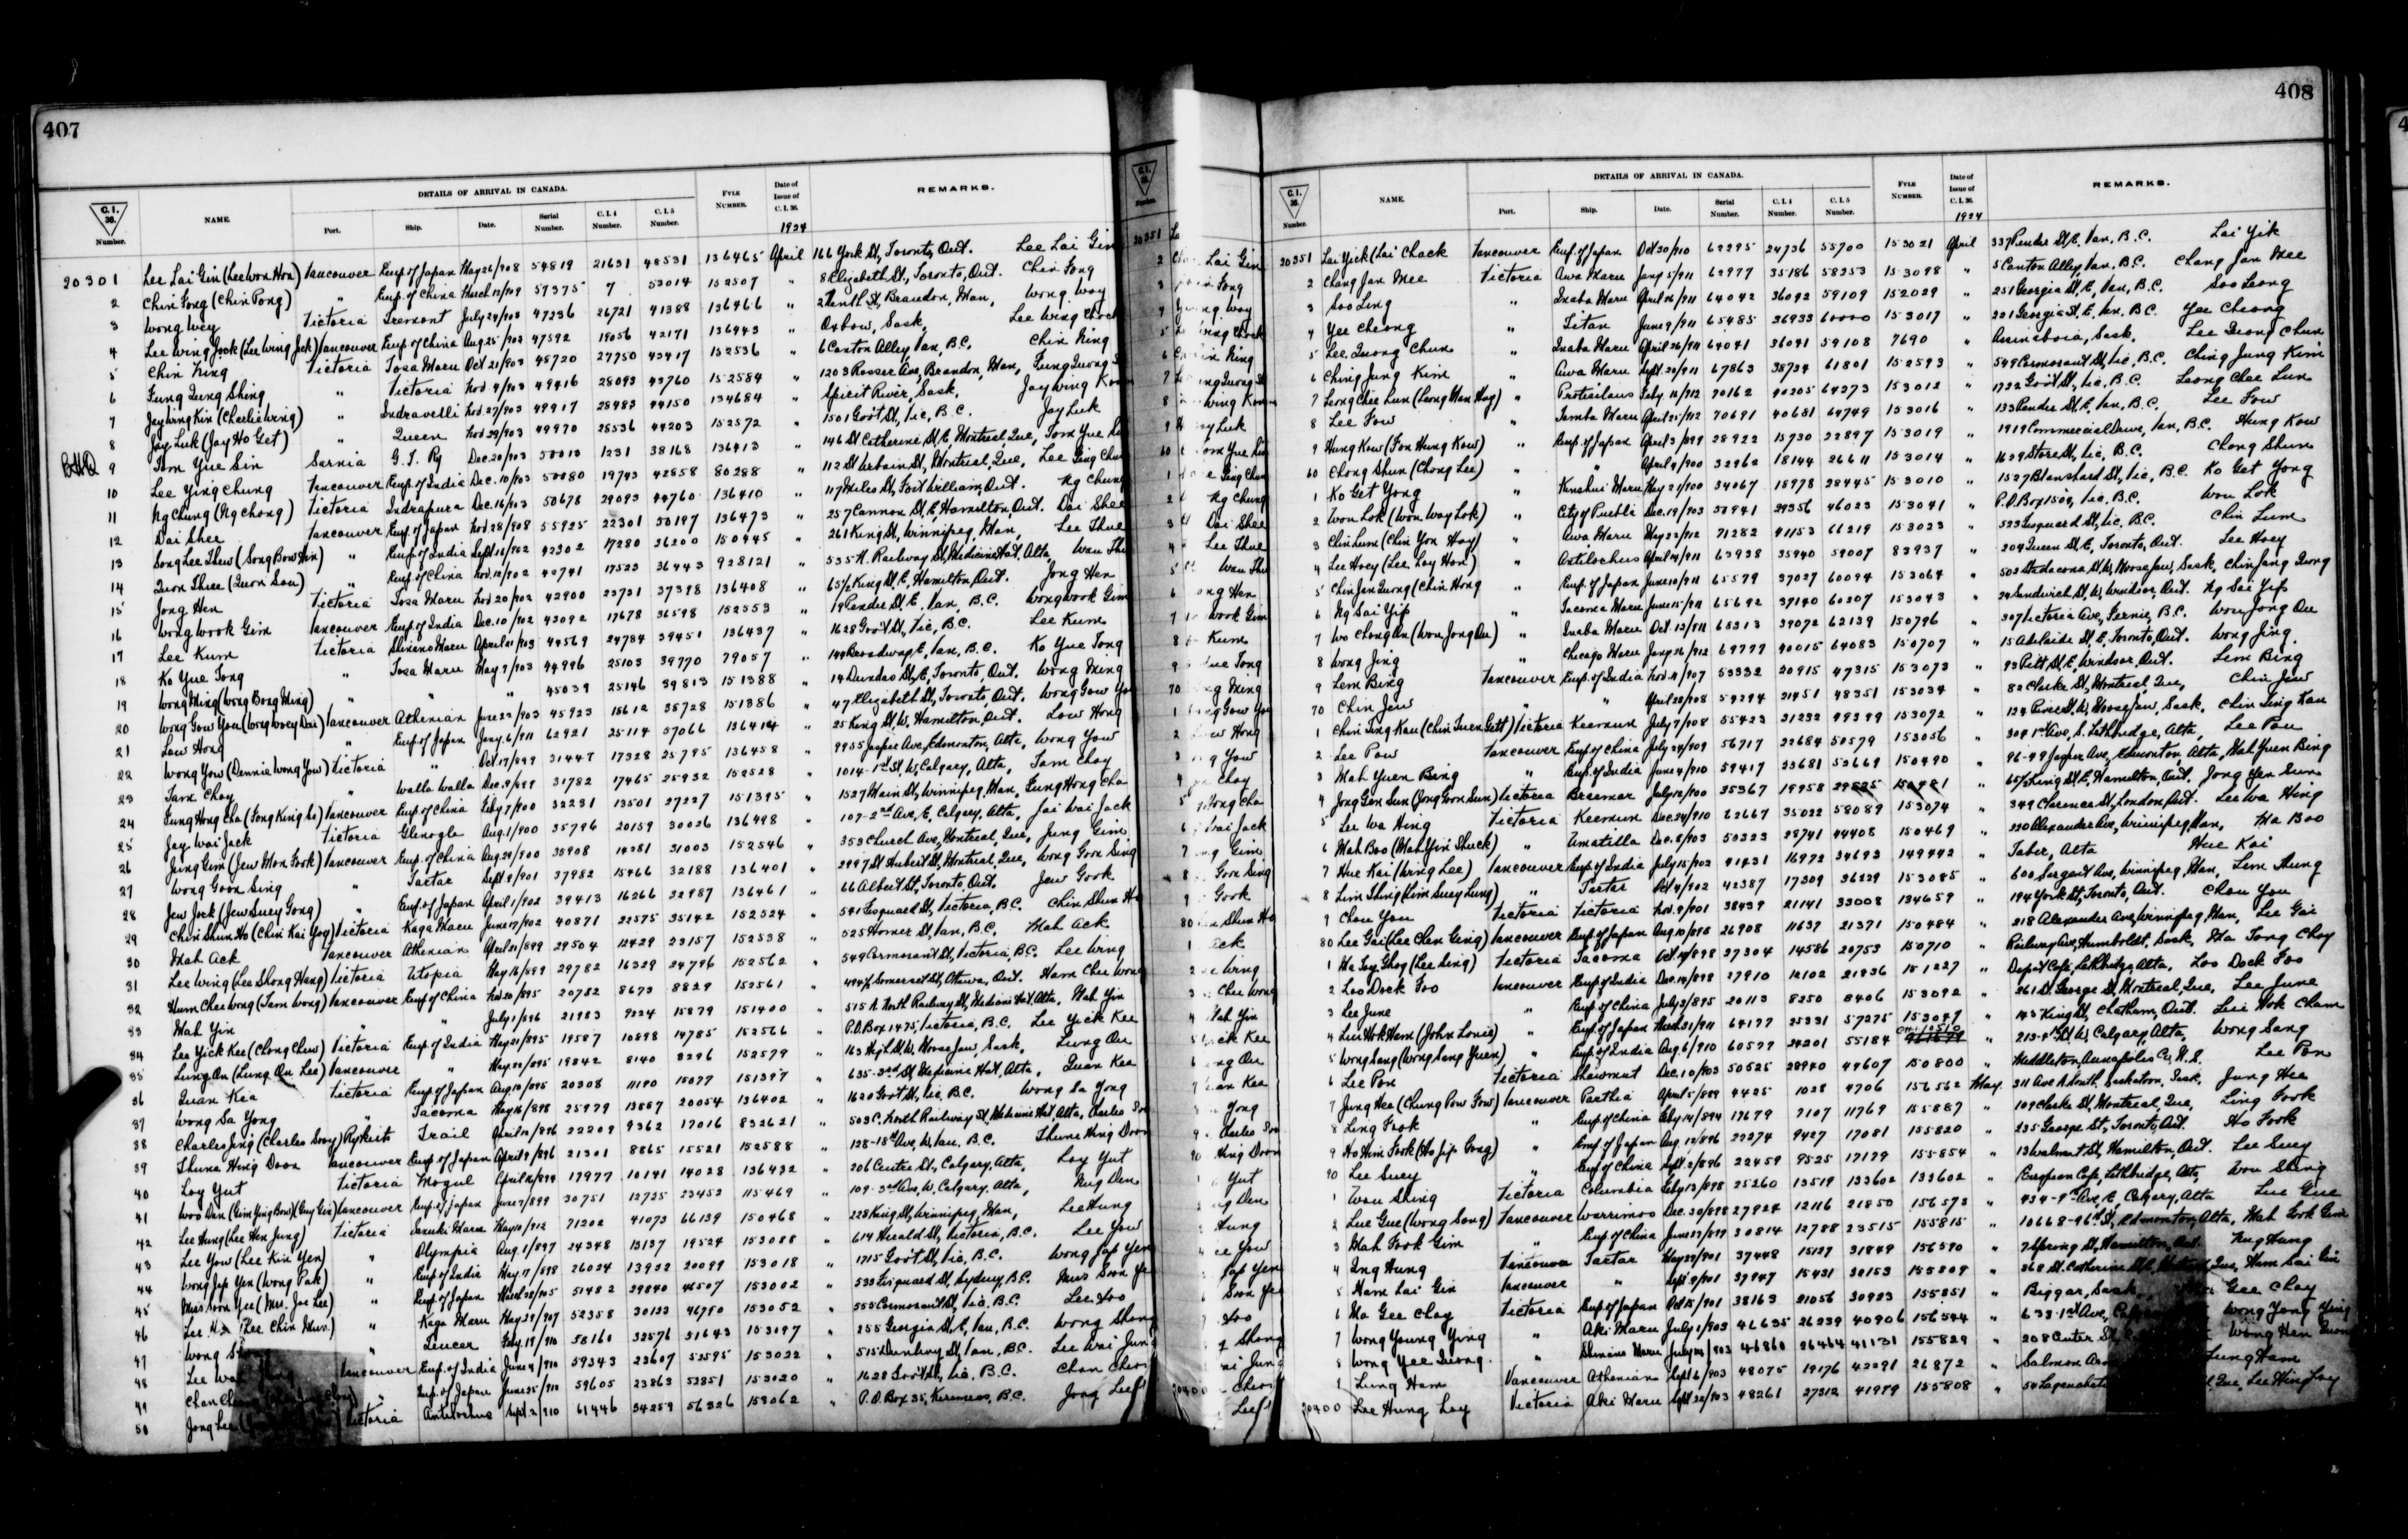 407
C.I. 36. Number.
NAME.
DETAILS OF ARRIVAL IN CANADA.
Port. Ship. Date. Serial Number. C.I.4 Number. C.I.5 Number.
FYLE NUMBER.
Date of Issue of C.I.36.
1924
REMARKS.
20301 Lee Lai Gin (Lee Won Hon) Vancouver Emp. of Japan May 26/908 54819 21631 48531 136465 April 166 York St, Toronto, Ont. Lee Lai Gin
2 Chin Fong (Chin Pong) " Emp. of China March 13/909 57375 7 53014 152507 " 8 Elizabeth St., Toronto, Ont. Chin Fong
3 Wong Wey Victoria Tremont July 24/903 47236 26721 41388 136466 " Brandon, Man, Wong Way
4 Lee Wing Jook (Lee Wing Jock) Vancouver Emp of China Aug. 25/903 47592 42171 136943 " Oxbow, Sask, Lee Wing
5 Chin King Victoria Tosa Maru Oct 21/903 48720 27750 43417 152536 " 6 Canton Alley, Van, B.C. Chin King
6 Fung Qung Shing " Victoria Nov 9/903 49416 28093 43760 152584 " 1203 Rosser Ave, Brandon, Man,
7 Jay Wing Kin (Charlie Wing) " Indravelli Nov. 27/903 49917 28483 44150 134684 " Spirit River, Sask, Jay Wing
8 Jay Luk (Jay Ho Get) " Queen Nov 29/903 49970 28536 44203 152572 " 1501 Gov't St, Vic, B.C. Jay Luk
9 Tom Yue Sin Sarnia G.T. Ry Dec. 20/903 1231 38168 136413 " 146 St Catherine St, E, Montreal, Que, Tom Yue
10 Lee Ying Chung Vancouver Emp. of India Dec. 10/903 19743 42858 80288 " 112 St Urbain St, Montreal, Que, Lee Ging
11 Ng Chung (Ng Chong) Victoria Indrapura Dec. 16/903 50678 29093 44760 136410 " 117 Miles St, Fort William, Ont. Ng Chung
12 Dai Shee Vancouver Emp. of Japan Nov 28/908 55925 22301 50197 136473 " 257 Cannon St, E, Hamilton, Ont. Dai Shee
13 Song Lee Thew (Song Bow Hin) " Emp. of India Sept 16/902 42302 17280 36200 150445 " 261 King St, Winnipeg, Man, Lee Thue
14 Quon Three (Quon Sou) " Emp. of China Nov. 12/902 42741 17523 36443 928121 " 535 N. Railway St, Medicine Hat, Alta,
15 Jong Hen Victoria Tosa Maru Nov 20/902 42900 22731 37398 136408 " 65½ King St, E, Hamilton, Ont. Jong Hen
16 Wong Wook Gim Vancouver Emp. of India Dec. 10/902 43092 17678 36598 152553 " 19 Pender St, E, Van, B.C. Wong Wook Gim
17 Lee Kum Victoria Shinano Maru April 21/903 44569 24784 39451 136437 " 1628 Gov't St, Vic, B.C. Lee Kum
18 Ko Yue Tong " Tosa Maru May 9/903 44996 25103 39770 79057 " 144 Broadway E, Van, B.C. Ko Yue Tong
19 Wong Ming (Wong Bong Ming) " " " 45039 25146 39813 151388 " 14 Dundas St, E, Toronto, Ont. Wong Ming
20 Wong Gow You (Wong Woey Dai) Vancouver Athenian June 22/903 45923 18612 38728 151386 " 47 Elizabeth St, Toronto, Ont. Wong Gow You
21 Low Hong " Emp. of Japan Jany. 6/911 62921 25114 57066 136414 " 25 King St, W, Hamilton, Ont. Low Hong
22 Wong Yow (Dennie Wong Yow) Victoria " Oct 17/899 31447 17328 25795 136458 " 9955 Jasper Ave, Edmonton, Alta, Wong Yow
23 Tam Choy " Walla Walla Dec. 9/899 31782 17465 25932 152528 " 1014-1st St, W, Calgary, Alta, Tam Choy
24 Fung Hong Cha Vancouver Emp. of China Feby 7/900 32231 13501 27227 151395 " 1527 Main St, Winnipeg, Man, Fung Hong Cha
25 Jay Wai Jack Victoria Glenogle Aug. 1/900 35796 20159 30026 136498 " 107-2nd Ave, E, Calgary, Alta, Jai Wai Jack
26 Jung Gim (Jew Mon Gook) Vancouver Emp. of China Aug. 29/900 35908 14281 31003 152546 " 353 Church Ave, Montreal, Que, Jung Gim
27 Wong Goon Sing " Tartar Sept 9/901 37982 15466 32188 136401 " 2997 St Hubert St, Montreal, Que, Wong Goon Sing
28 Jew Jock (Jew Suey Gong) " Emp. of Japan April 1/902 39413 16266 32987 136461 " 66 Albert St, Toronto, Ont. Jew Gook
29 Chin Shun Ho (Chin Kai Yog) Victoria Kaga Maru June 17/902 40871 22575 35142 152524 " 541 Fisguard St, Victoria, B.C. Chin Shun Ho
30 Mah Ack Vancouver Athenian April 21/899 29504 12429 23157 152538 " 525 Homer St, Van, B.C. Mah Ack
31 Lee Wing (Lee Shong Hang) Victoria Utopia May 16/899 29782 16329 24796 152562 " 549 Cormorant St, Victoria, B.C. Lee Wing
32 Hum Chee Wong (Tam Wong) Vancouver Emp of China Nov. 20/895 20752 8673 8829 152561 " Somerset St, Ottawa, Ont. Ham Chee Wong
33 Mah Yin " " July 1/896 21983 9224 15879 151400 " 515 A North Railway St, Medicine Hat, Alta, Mah Yin
34 Lee Yick Kee (Chong Chew) Victoria Emp. of India May 21/895 19587 10898 14785 152566 " P.O. Box 1475, Victoria, B.C. Lee Yick Kee
35 Lung On (Lung On Lee) Vancouver " May 22/895 19842 8140 8296 152579 " 163 High St, W, Moose Jaw, Sask, Lung On
36 Quan Kea Victoria Emp. of Japan Aug. 13/895 20308 11190 15077 151397 " 635-3rd St, Medicine Hat, Alta, Quan Kee
37 Wong Sa Yong " Tacoma May 16/898 25979 13887 20054 136402 " 1620 Gov't St, Vic, B.C. Wong Sa Yong
38 Charles Jing (Charles Sooy) Rykerts Trail April 12/896 22209 9362 17016 832621 " 503 C. North Railway St, Medicine Hat, Alta, Charles
39 Thune Hing Doon Vancouver Emp. of Japan April 9/896 21301 8865 15521 152588 " 128-18th Ave, W, Van, B.C. Thune Hing Doon
40 Loy Yut Victoria Mogul April 12/894 17977 10141 14028 136432 " 206 Centre St., Calgary, Alta, Loy Yut
41 Woo Den (Gim Ying Bow) (Guy Gin) Vancouver Emp. of Japan June 7/899 30751 12725 23452 115469 " 109-3rd Ave, W, Calgary, Alta, Nug Den
42 Lee Hung (Lee Hen Jung) Victoria Maru May 10/912 71202 41073 66139 150468 " 228 King St, Winnipeg, Man, Lee Hung
43 Lee Yow (Lee Kin Yen) " Olympia Aug. 1/897 24348 13137 19524 153088 " 614 Herald St, Victoria, B.C. Lee Yow
44 Wong Jap Yen (Wong Pak) " Emp. of India May 17/898 26024 13932 20099 153018 " 1715 Gov't St, Vic, B.C. Wong Jap Yen
45 Miss Soon Yee (Mrs. Joe Lee) " Emp. of Japan March 28/905 51482 29840 46507 153002 " 533 Fisguard St, Sydney, B.C. Miss Soon
46 Lee (Lee Chin Mun.) " Kaga Maru May 29/907 52358 30123 46790 153052 " 555 Cormorant St, Vic, B.C. Lee Soo
47 Wong " Teucer Feby. 19/910 58160 32576 51643 153097 " 255 Georgia St, E, Van, B.C. Wong Shong
48 Lee Wai Vancouver Emp. of India June 4/910 59343 23607 52595 153022 " 515 Dunlevy St, Van, B.C. Lee Wai Jung
49 Chan " Emp. of Japan June 25/910 59605 23863 52851 153020 " 1628 Gov't St, Vic, B.C. Chan
50 Jong Lee Victoria Antilochus Sept. 2/910 61446 34259 56326 153062 " P.O. Box 35, Keremeos, B.C. Jong Lee
408
C.I. 36. Number.
NAME.
DETAILS OF ARRIVAL IN CANADA.
Port. Ship. Date. Serial Number. C.I.4 Number. C.I.5 Number.
FYLE NUMBER.
Date of Issue of C.I.36.
1924
REMARKS.
20351 Lai Yick (Lai Chack Vancouver Emp. of Japan Oct 30/910 62295 24736 55700 153021 April 337 Pender St, E, Van, B.C. Lai Yik
2 Chang Jan Mee Victoria Awa Maru Jany 5/911 62977 35186 58253 153098 " 5 Canton Alley, Van, B.C. Chang Jan Mee
3 Soo Ling " Inaba Maru April 26/911 64042 36092 59109 152029 " 251 Georgia St, E, Van, B.C. Soo Leong
4 Yee Cheong " Titan June 9/911 65485 36933 60000 153017 " 221 Georgia St, E, Van, B.C. Yee Cheong
5 Lee Quong Chun " Inaba Maru April 26/911 64041 36041 59108 7690 " Assiniboia, Sask, Lee Quong Chun
6 Ching Jung Kim " Awa Maru Sept. 20/911 67863 38734 61801 152593 " 549 Cormorant St, Vic, B.C. Ching Jung Kim
7 Leong Chee Lun (Leong Man Hay) " Protesilaus Feby. 16/912 70162 40205 64273 153012 " 1732 Gov't St, Vic, B.C. Leong Chee Lun
8 Lee Fow " Tamba Maru April 25/912 70691 40681 64749 153016 " 133 Pender St, E, Van, B.C. Lee Fow
9 Hung Kow (Fon Hung Kow) " Emp. of Japan April 3/899 28922 15730 22897 153019 " 1919 Commercial Drive, Van, B.C. Hung Kow
60 Chong Shun (Chong Lee) " " April 9/900 32962 18144 26611 153014 " 1629 Store St, Vic, B.C. Chong Shun
1 Ko Get Yong " Kinshui Maru May 21/900 34067 18978 28445 153010 " 1527 Blanshard St, Vic, B.C. Ko Get Yong
2 Won Lok (Won Way Lok) " City of Puebla Dec. 19/903 50941 29356 46023 153041 " P.O. Box 1509, Vic, B.C. Won Lok
3 Chin Lum (Chin Yon Hoy) " Awa Maru May 23/912 71282 41153 66219 153023 " 523 Fisguard St, Vic, B.C. Chin Lum
4 Lee Hoey (Lee Loy Hon) " Antilochus April 19/911 63938 35940 59007 83937 " 204 Queen St, E, Toronto, Ont. Lee Hoey
5 Chin Jan Quong (Chin Hong " Emp. of Japan June 10/911 65579 37027 60094 153064 " 503 Stadacona St, W, Moose Jaw, Sask, Chin Jang Quong
6 Ng Sai Yip " Tacoma Maru June 15/911 65692 37140 60207 153043 " 24 Sandwich St, W, Windsor, Ont. Ng Sai Yip
7 Wo Chong On (Won Jong On) " Inaba Maru Oct. 13/911 68213 39072 62139 150796 " 307 Victoria Ave, Fernie, B.C. Won Jong On
8 Wong Jing " Chicago Maru Jany 26/912 69779 40015 64083 150707 " 15 Adelaide St, E, Toronto, Ont. Wong Jing.
9 Lem Bing Vancouver Emp. of India Nov. 11/907 53332 20915 47315 153073 " 93 Pitt St, E, Windsor, Ont. Lem Bing
70 Chin Jew " " April 28/908 54294 21451 48351 153034 " 82 Clarke St, Montreal, Que, Chin Jew
1 Chin Ting Kau (Chin Suen Gett) Victoria Keemun July 7/908 55423 31232 49399 153072 " 134 River St, W, Moose Jaw, Sask. Chin Ting Kau
2 Lee Pow Vancouver Emp. of China July 24/909 56717 22684 50579 153056 " 304 1st Ave, S. Lethbridge, Alta, Lee Pou
3 Mah Yuen Bing " Emp. of India June 4/910 59417 23681 52669 150490 " 96-49 Jasper Ave, Edmonton, Alta, Mah Yuen Bing
4 Jong Gen Sun (Jong Goon Sun) Victoria Braemar July 12/900 35367 19958 29825 150981 " 65½ King St, E, Hamilton, Ont. Jong Yen Sun
5 Lee Wa Hing Victoria Keemun Dec. 24/910 62667 35022 58089 153074 " 349 Clarence St, London, Ont. Lee Wa Hing
6 Mah Boo (Mah Yin Shuck) " Umatilla Dec. 8/903 50323 28741 44408 150469 " 220 Alexander Ave, Winnipeg, Man, Ma Boo
7 Hue Kai (Wing Lee) Vancouver Emp. of India July 15/902 41431 16972 34693 149442 " Taber, Alta Hue Kai
8 Lim Thing (Lim Suey Lung) " Tartar Oct 4/902 42387 17309 36229 153085 " 600 Sargent Ave, Winnipeg, Man, Lem Thung
9 Chou You Victoria Victoria Nov. 9/901 38439 21141 33008 134659 " 194 York St, Toronto, Ont. Chou You
80 Lee Gai (Lee Chen Ging) Vancouver Emp. of Japan Aug 10/898 26908 11639 21371 150484 " 218 Alexander Ave, Winnipeg, Man, Lee Gai
1 Ma Toy Choy (Lee Sing) Victoria Tacoma Oct 14/898 27304 14586 20753 150710 " Railway Ave, Humboldt, Sask, Ma Tong Choy
2 Loo Dock Foo Vancouver Emp of India Dec. 10/898 27910 12102 21836 151227 " Depot Cafe, Lethbridge, Alta, Loo Dock Foo
3 Lee June " Emp. of China July 3/895 20113 8250 8406 153092 " 261 St. George St, Montreal, Que, Lee June
4 Lui Hok Ham (John Louie) " Emp. of Japan March 21/911 64177 25331 57275 153047 " 145 King St, Chatham, Ont. Lui Hok Cham
5 Wong Sang (Wong Sang Yuen) " Emp. of India Aug. 6/910 60599 24201 55184 " 213-1st St, W, Calgary, Alta, Wong Sang
6 Lee Pon Victoria Shawmut Dec. 10/903 50525 28940 44607 150800 " Middleton, Annapolis Co, N.S. Lee Pon
7 Jung Hee (Chung Pow Fow) Vancouver Parthia April 5/889 4425 1028 4706 156562 May 311 Ave A South, Saskatoon, Sask, Jung Hee
8 Ling Fook " Emp. of China Feby 14/894 17679 7107 11769 155887 " 109 Clarke St, Montreal, Que, Ling Fook
9 Ho Him Fook (Ho Jip Gong) " Emp. of Japan Aug 12/896 22274 9427 17081 155820 " 235 George St, Toronto, Ont. Ho Fook
90 Lee Suey " Emp. of China Sept. 2/896 22459 9525 17179 155854 " 13 Walnut St, Hamilton, Ont. Lee Suey
1 Won Shing Victoria Columbia Feby 13/898 25260 13519 133602 133602 " European Cafe, Lethbridge, Alta, Won Shing
2 Lue Gue (Wong Song) Vancouver Warrimoo Dec. 30/898 27924 12116 21850 156573 " 434-9th Ave, E, Calgary, Alta Lue Gue
3 Mah Fook Gim " Emp. of China June 27/899 30814 12788 23515 155815 " 10668-96th St, Edmonton, Alta, Mah Fook Gim
4 Ing Hung Victoria Tartar May 27/901 37448 15127 31849 156590 " 7 Spring St, Hamilton, Ont. Nug Hung
5 Ham Lai Gin Vancouver " Sept. 9/901 37947 15431 32153 155809 " 368 St. Catherine St, Que, Ham Sai Gin
6 Ma Gee Choy Victoria Emp. of Japan Oct 15/901 38163 21056 30923 155851 " Biggar, Sask, Gee Choy
7 Wong Young Ying " Aki Maru July 1/903 46635 26239 40906 156544 " 633-1st Ave, Wong Yong Ying
8 Wong Yee Quong. " Shinano Maru July 14/903 46860 26464 41131 155829 " 208 Center St, Wong Hen
9 Lung Ham Vancouver Athenian Sept 6/903 48075 19176 42291 26872 " Salmon Arm Lung Ham
20400 Lee Hung Loy Victoria Aki Maru Sept 22/903 48261 27312 41979 155808 " 54 Lagauchetiere Que, Lee Hing Loy